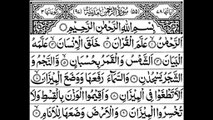 بِسْمِ اللهِ الرَّحْمٰنِ الرَّحِيْمِ
اَلرَّحْمٰنُ ۝ عَلَّمَ الْقُرْاٰنَ ۝ خَلَقَ الْاِنْسَانَ ۝ عَلَّمَهُ
الْبَيَانَ ۝ اَلشَّمْسُ وَالْقَمَرُ بِحُسْبَانٍ ۝ وَّالنَّجْمُ وَ
الشَّجَرُ يَسْجُدٰنِ ۝ وَالسَّمَآءَ رَفَعَهَا وَوَضَعَ الْمِيْزَانَ ۝
اَلَّا تَطْغَوْا فِى الْمِيْزَانِ ۝ وَاَقِيْمُوا الْوَزْنَ بِالْقِسْطِ وَلَا
تُخْسِرُوا الْمِيْزَانَ ۝ وَالْاَرْضَ وَضَعَهَا لِلْاَنَامِ ۝